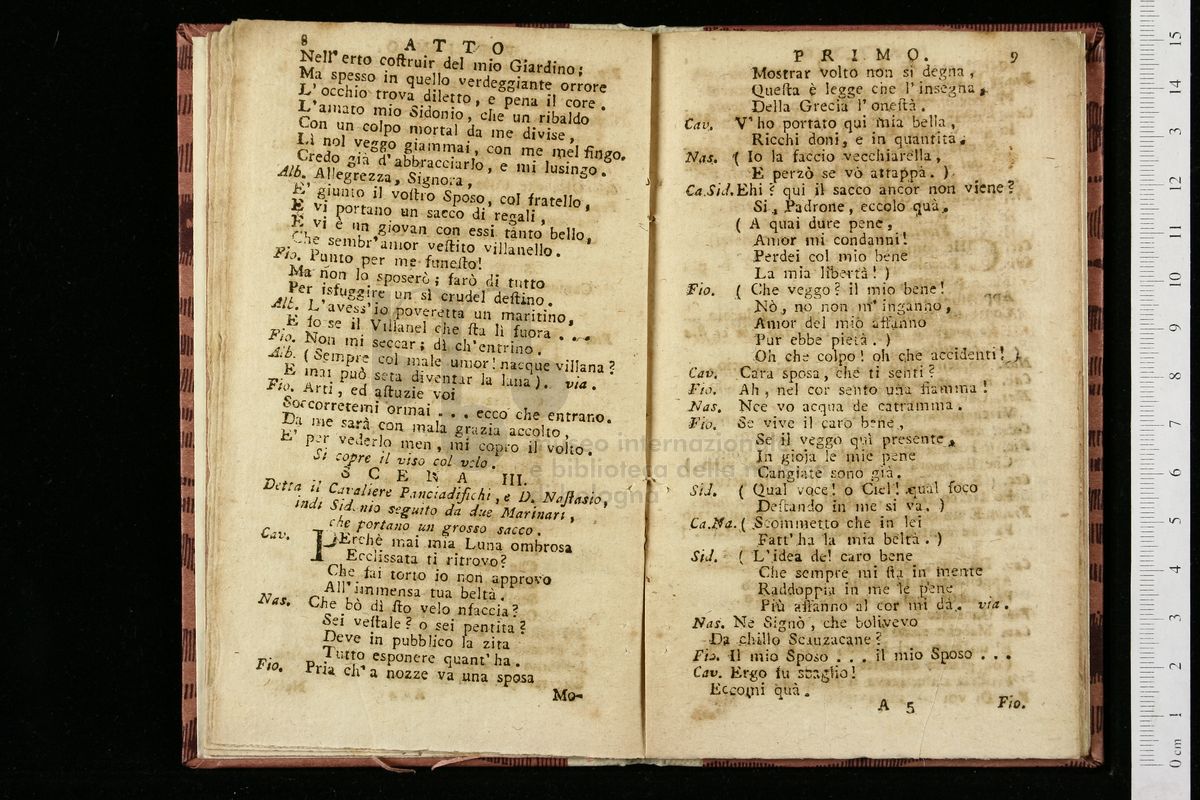 8 ATTO
Nell' erto coſtruir del mio Giardino;
Ma spesso in quello verdeggiante orrore
L' occhio trova diletto, e pena il core.
L'amato mio Sidonio, che un ribaldo
Con un colpo mortal da me divise,
Lì nol veggo giammai, con me mel fingo.
Credo già d'abbracciarlo, e mi lusingo.
Alb. Allegrezza, Signora,
E' giunto il voſtro Sposo, col fratello,
E vi portano un sacco di regali,
E vi è un giovan con essi tanto bello,
Che sembr'amor veſtito villanello.
Fio. Punto per me funeſto!
Ma non lo sposerò; farò di tutto
Per isfuggire un sì crudel deſtino.
Alb. L'avess'io poveretta un maritino,
E fo se il Villanel che ſta lì fuora . . .
Fio. Non mi seccar; dì ch'entrino.
Alb. ( Sempre col male umor! nacque villana?
E mai può seta diventar la lana). via.
Fio. Arti, ed aſtuzie voi
Soccorretemi ormai . . . ecco che entrano.
Da me sarà con mala grazia accolto,
E' per vederlo men, mi copro il volto.
Si copre il viso col velo.
SCENA III.
Detta il Cavaliere Panciadifichi, e D. Naſtasio,
indi Sidonio seguito da due Marinari,
che portano un grosso sacco.
Cav. PErchè mai mia Luna ombrosa
Ecclissata ti ritrovo?
Che fai torto io non approvo
All'immensa tua beltà.
Nas. Che bò dì ſto velo nfaccia?
Sei veſtale? o sei pentita?
Deve in pubblico la zita
Tutto esponere quant' ha.
Fio. Pria ch'a nozze va una sposa
Mo-
PRIMO. 9
Mostrar volto non si degna,
Queſta è legge che l'insegna,
Della Grecia l'oneſtà.
Cav. V'ho portato qui mia bella,
Ricchi doni, e in quantità.
Nas. ( Io la faccio vecchiarella,
E perzò se vò attappà. )
Ca.Sid. Ehi? qui il sacco ancor non viene?
Si, Padrone, eccolo quà.
( A quai dure pene,
Amor mi condanni!
Perdei col mio bene
La mia libertà! )
Fio. ( Che veggo? il mio bene!
Nò, no non m'inganno,
Amor del mio affanno
Pur ebbe pietà. )
Oh che colpo! oh che accidenti! )
Cav. Cara sposa, che ti senti?
Fio. Ah, nel cor sento una fiamma!
Nas. Nce vo acqua de catramma.
Fio. Se vive il caro bene,
Se il veggo quì presente,
In gioja le mie pene
Cangiate sono già.
Sid. ( Qual voce! o Ciel! qual foco
Deſtando in me si va. )
Ca.Na. ( Scommetto che in lei
Fatt'ha la mia beltà. )
Sid. ( L'idea del caro bene
Che sempre mi ſta in mente
Raddoppia in me le pene
Più affanno al cor mi dà. via.
Nas. Ne Signò, che bolivevo
Da chillo Scauzacane?
Fio. Il mio Sposo . . . il mio Sposo . . .
Cav. Ergo fu sbaglio!
Eccomi quà.
A 5 Fio.
museo internazional
e biblioteca della m
di bologna